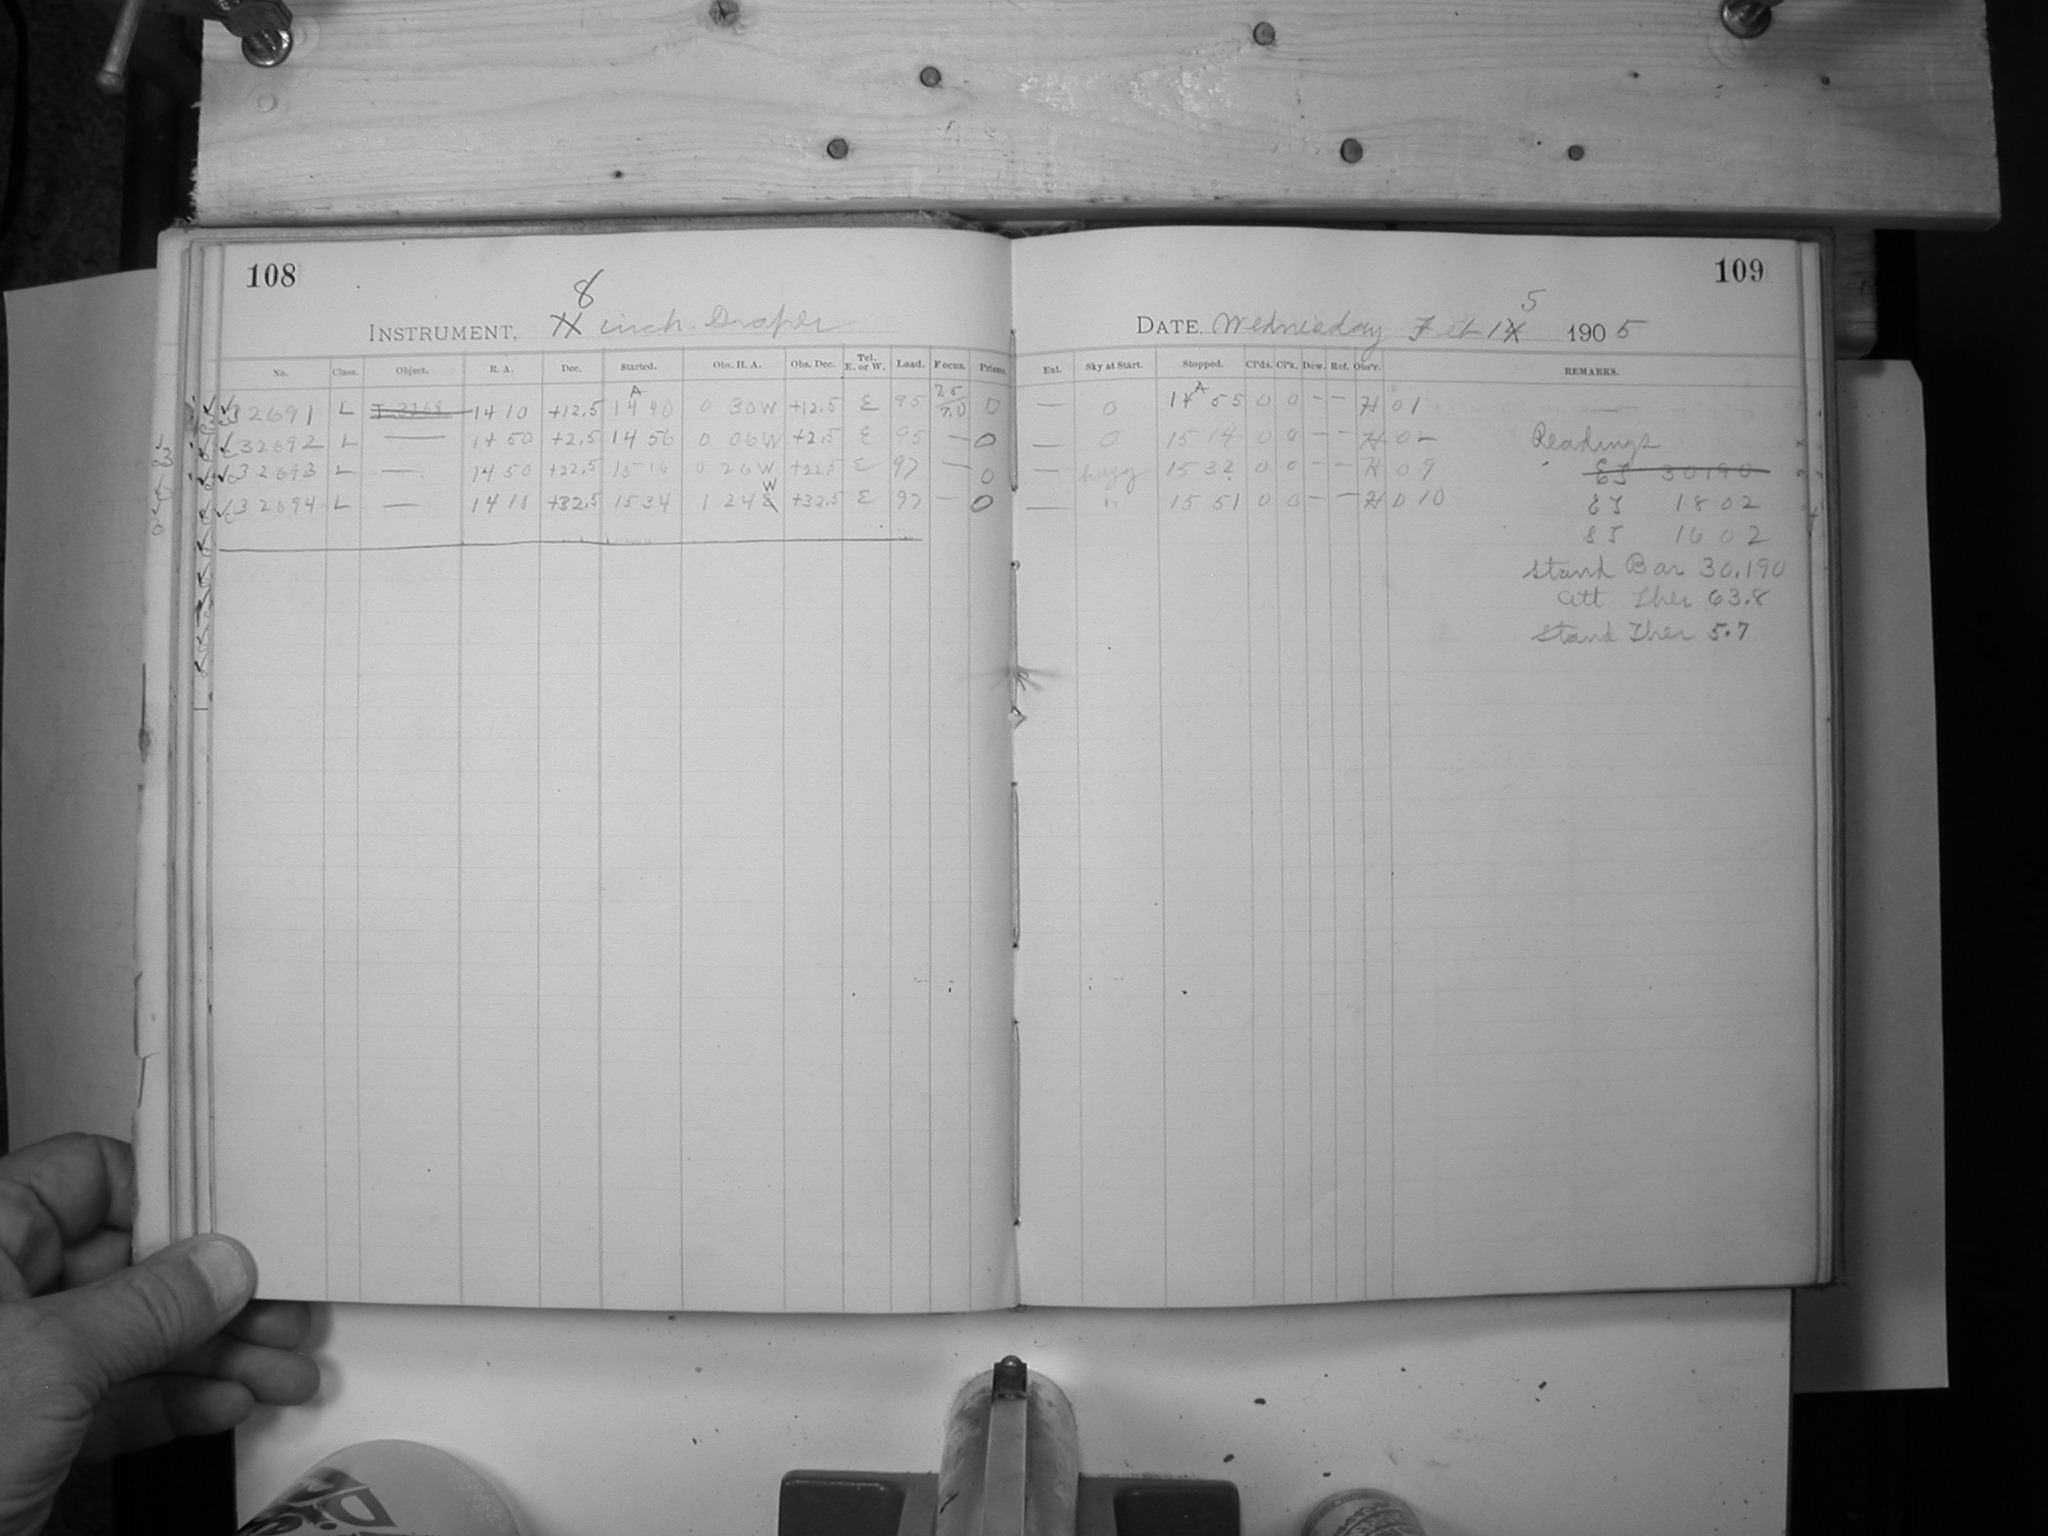 108
8
INSTRUMENT, inch Draper
No. Class. Object. R. A. Dec. Started. Obs. H. A. Obs. Dec. Tel. E. or W. Load. Focus. Prisms.
32691 L 14 10 +12.5 A 14 40 0 30W +12.5 E 95 7.5/7.0 0
32692 L — 14 50 +2.5 14 56 0 06W +2.5 E 95 — 0
32693 L — 14 50 +22.5 15 16 0 26W +22.5 E 97 — 0
32694 L — 14 10 +32.5 15 34 1 24 W +32.5 E 97 — 0
109
5
DATE, Wednesday Feb 1 1905
Ext. Sky at Start. Stopped. Cl'ds. Cl'k. Dew. Ref. Obs'r. REMARKS.
— 0 14 A 55 0 0 – – H 01
— 0 15 14 0 0 – – H 02 Readings
— hazy 15 32 0 0 – – H 09 ET 30190
— " 15 51 0 0 – – H 010 ET 1802
ST 1602
Stand Bar 30.190
Att Ther 63.8
Stand Ther 5.7
Diet